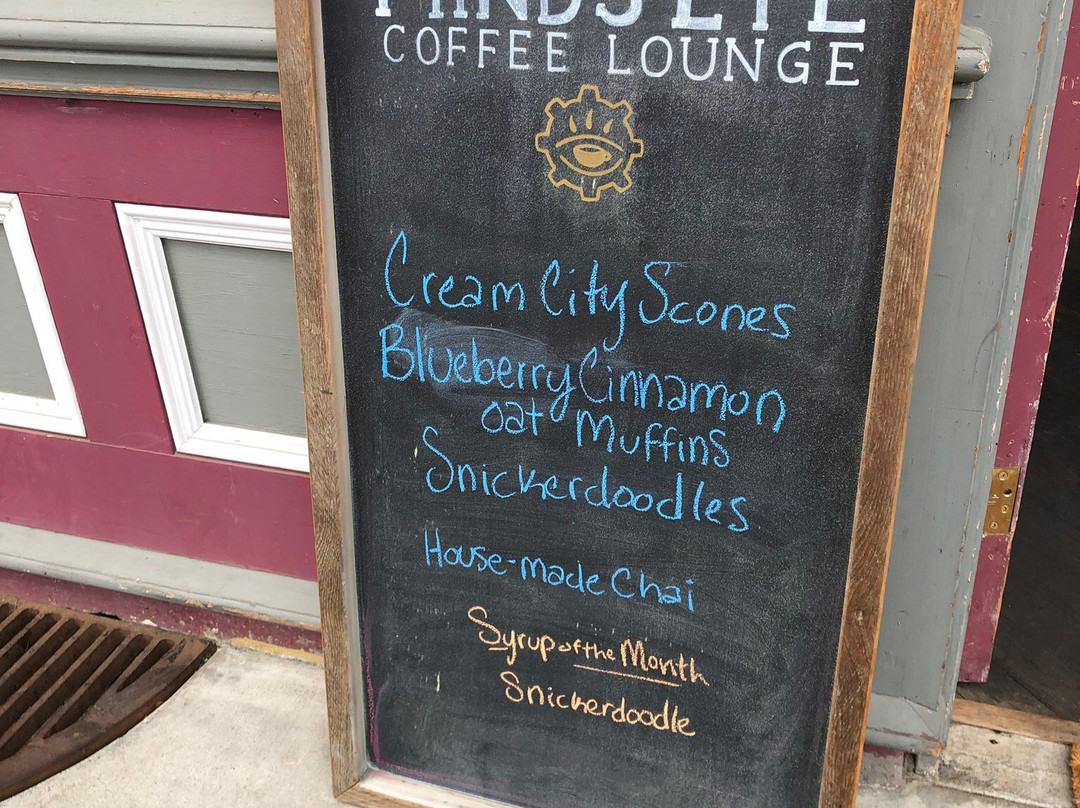 MINDS EYE
COFFEE LOUNGE
Cream City Scones
Blueberry Cinnamon
oat Muffins
Snickerdoodles
House-made Chai
Syrup of the Month
Snickerdoodle